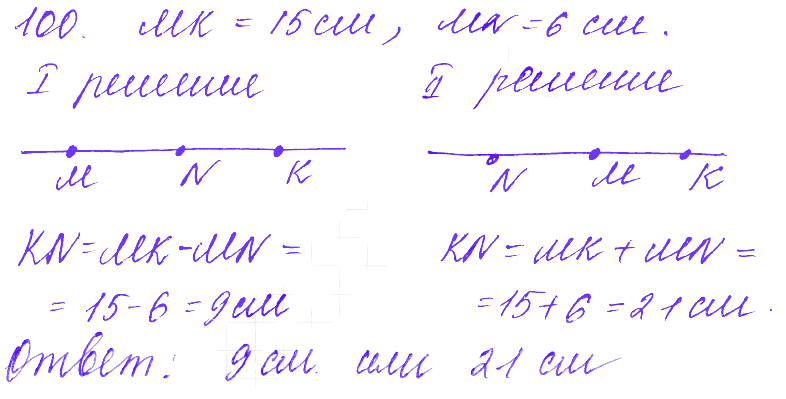 100. МК = 15 см, MN = 6 см.
I решение II решение
M N K N M K
KN = MK - MN = KN = MK + MN =
= 15 - 6 = 9 см = 15 + 6 = 21 см.
Ответ: 9 см. или 21 см